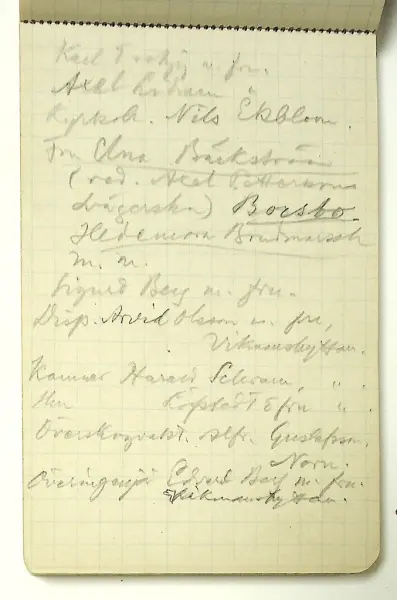 Karl Trotzig m. fru.
Axel
Kyrkoh. Nils Ekblom.
Fru Elna Bäckström
(red. Axel Pettersons
svägerska) Borsbo
Hedemora Brudmarsch
m. m.
Sigurd Berg m. fru.
Disp. Arvid Olsson m. fru,
Vikmanshyttan.
Kamrer Harald Schram, " "
Herr & fru "
Överskogvakt. Alfr. Gustafsson.
Norn.
Överingenjö Edvard Berg m. fru.
Vikmanshyttan.